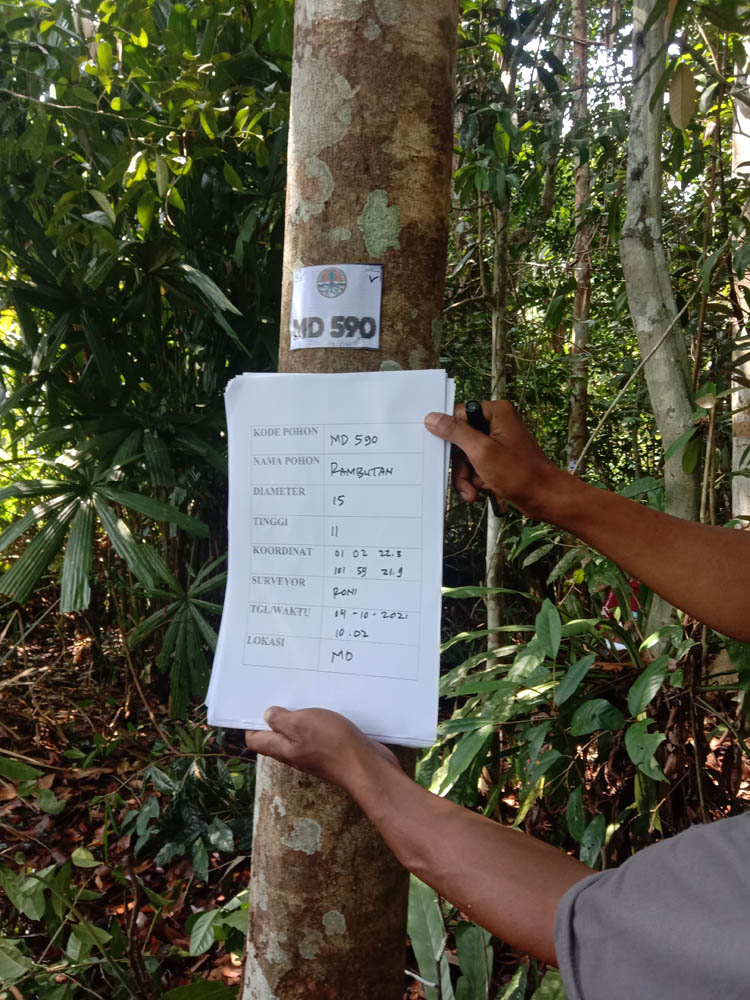 MD 590
KODE POHON MD 590
NAMA POHON RAMBUTAN
DIAMETER 15
TINGGI 11
KOORDINAT 01 02 22.3
101 59 21.9
SURVEYOR RONI
TGL/WAKTU 04-10-2021
10.02
LOKASI MD